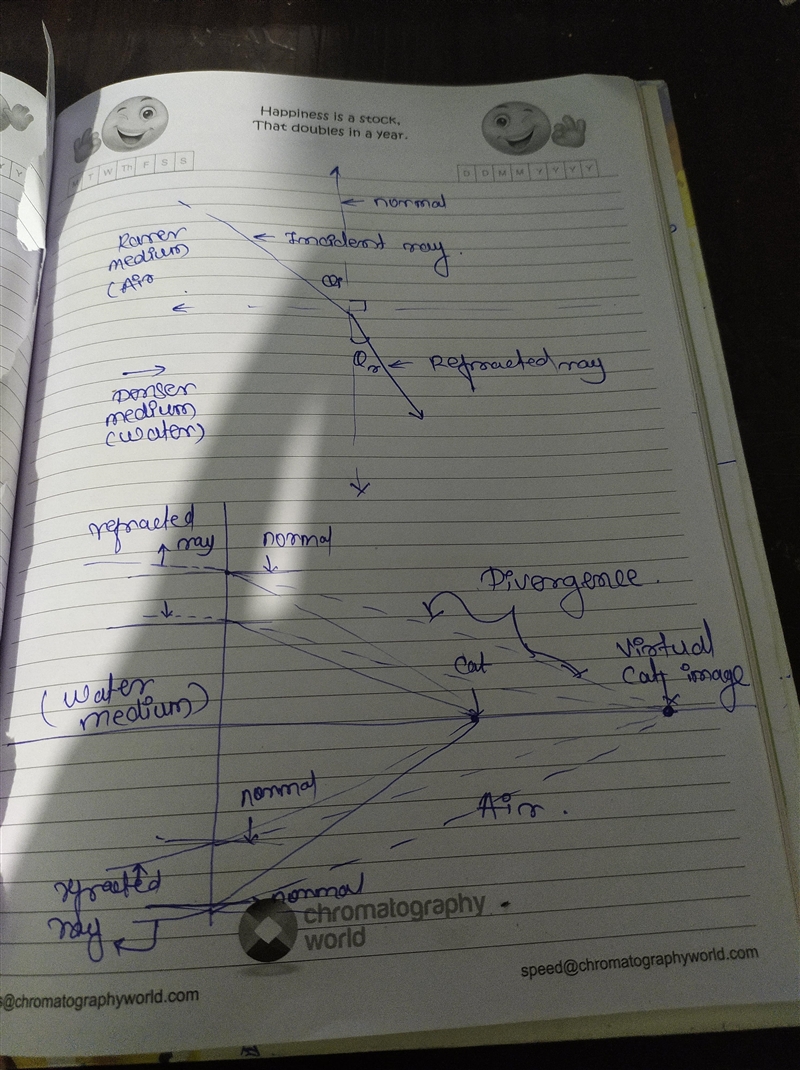 Happiness is a stock,
That doubles in a year.
T W Th F S S
D D M M Y Y Y Y
normal
Incident ray.
Rarer
medium
(Air
Refracted ray
Denser
medium
(water)
refracted
ray
normal
Divergence.
Cat
Virtual
Cat image
(Water
medium)
normal
Air.
refracted
ray
normal
chromatography
world
s@chromatographyworld.com
speed@chromatographyworld.com